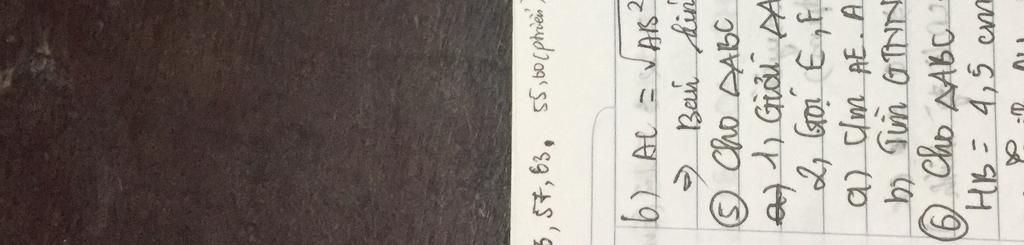 3, 57, 63, 55, 60 (phiếu)
b) AC = √AB²
⇒ Bán kín
⑤ Cho △ABC
1, Giải △A
2, Gọi E, F
a) C/m AE. A
b) Tìm GTNN
⑥ Cho △ABC
HB = 4,5 cm